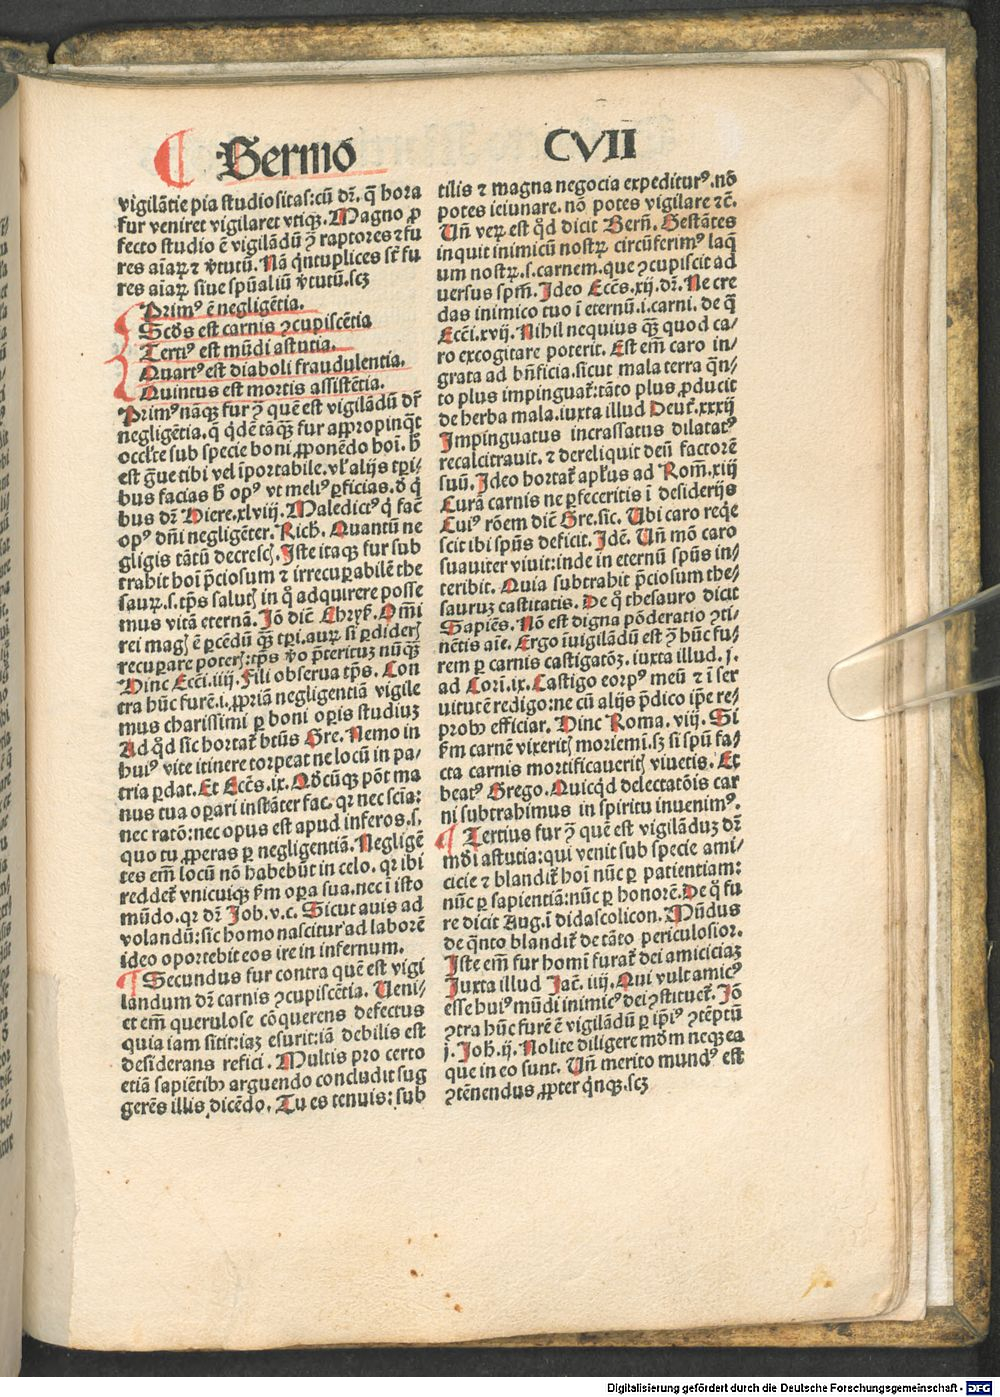 Sermo
CVII
vigilātie pia studiositas: cū dr̄. q̄ hora
fur veniret vigilaret vtiqꝫ. Magno ꝓ
fecto studio ē vigilādū ꝯ̄ raptores ⁊ fu
res aīaꝝ ⁊ v̄tutū. Nā q̇ntuplices st̄ fu
res aīaꝝ siue spūaliū v̄tutū. scꝫ
Primꝰ ē negligētia.
Scd̄s est carnis ꝯcupiscētia
Tertiꝰ est mūdi astutia.
Quartꝰ est diaboli fraudulentia.
Quintus est mortis assistētia.
Primꝰ nāqꝫ fur ꝯ̄ quē est vigilādū dr̄
negligētia. q̄ q̇dē tāqꝫ fur appropinqt̄
occl̄te sub specie boni ꝓponēdo hoī. h̄
est ḡue tibi vel īportabile. vl̓ alijs tp̄ri-
bus facias h̄ opꝰ vt meliꝰ ꝑficias. d̄ q̇
bus dr̄ Hiere. xlviij. Maledictꝰ q̇ fac̄
opꝰ dn̄i negligēter. Rich̄. Quantū ne
gligis tātū decrescꝭ. Iste itaqꝫ fur sub
trahit hoī p̄ciosum ⁊ irrecuꝑabilē the
sauꝝ. s. tp̄s salutꝭ in q̇ adquirere posse
mus vitā eternā. Iō dic̄ Chrys̄. Om̄i
rei magꝭ ē ꝑcēdū qꝫ̄ tp̄ri. auꝝ si ꝑdiderꝭ
recuꝑare poterꝭ: tp̄s v̄o p̄teritū nūqꝫ̄
Hinc Ecc̄i. iiij. Fili obserua tp̄s. Con
tra hūc furē. i. ꝓpriā negligentiā vigile
mus charissimi ꝑ boni oꝑis studiuꝫ
Ad qd̄ sic hortat᷑ btūs Gre. Nemo in
huiꝰ vite itinere torpeat ne locū in pa-
tria ꝑdat. Et Ecc̄s. ix. Qd̄cūqꝫ pōt ma
nus tua oꝑari instāter fac. qꝛ nec scīa:
nec ratō: nec opus est apud inferos. s.
quo tu ꝓperas ꝑ negligentiā. Negligē
tes em̄ locū nō habebūt in celo. qꝛ ibi
reddet᷑ vnicuiqꝫ s̄m oꝑa sua. nec ī isto
mūdo. qꝛ dr̄ Job. v. c. Sicut auis ad
volandū: sic homo nascitur ad laborē
ideo oportebit eos ire in infernum.
Secundus fur contra quē est vigi
landum dr̄ carnis ꝯcupiscētia. Ueni-
et em̄ querulose cōquerens defectus
quia iam sitit: iaꝫ esurit: iā debilis est
desiderans refici. Multis pro certo
etiā sapiētibꝰ arguendo concludit sug
gerēs illis dicēdo. Tu es tenuis: sub
tilis ⁊ magna negocia expediturꝰ. nō
potes ieiunare. nō potes vigilare ⁊c̄.
Un̄ veꝝ est qd̄ dicit Bern̄. Gestātes
inquit inimicū nostꝝ circūferimꝰ laq̄
um nostꝝ. s. carnem. que ꝯcupiscit ad
uersus spm̄. Ideo Ecc̄s. xij. dr̄. Ne cre
das inimico tuo ī eternū. i. carni. de q̄
Ecc̄i. xvij. Nihil nequius qꝫ̄ quod ca-
ro excogitare poterit. Est em̄ caro in-
grata ad bn̄ficia. sicut mala terra q̄n-
to plus impinguat᷑: tāto plus ꝓducit
de herba mala. iuxta illud Deut̄. xxxij
Impinguatus incrassatus dilatatꝰ
recalcitrauit. ⁊ dereliquit deū factorē
suū. Ideo hortat᷑ apl̓us ad Rom̄. xiij
Curā carnis ne ꝑfeceritis ī desiderijs
Cuiꝰ rōem dic̄ Gre. sic. Ubi caro reqe
scit ibi spūs deficit. Idē. Un̄ mō caro
suauiter viuit: inde in eternū spūs in-
teribit. Quia subtrahit p̄ciosum the-
sauruꝫ castitatis. De q̇ thesauro dicit
Sapiēs. Nō est digna pōderatio ꝯti-
nētis aīe. Ergo īuigilādū est ꝯ̄ hūc fu-
rem ꝑ carnis castigatōꝫ. iuxta illud. j.
ad Corī. ix. Castigo corpꝰ meū ⁊ ī ser
uitutē redigo: ne cū alijs p̄dico ip̄e re-
probꝰ efficiar. Hinc Roma. viij. Si
s̄m carnē vixeritꝭ moriemī. sꝫ si spū fa-
cta carnis mortificaueritꝭ viuetis. Et
beatꝰ Grego. Quicqd̄ delectatōis car
ni subtrahimus in spiritu inuenimꝰ.
Tertius fur ꝯ̄ quē est vigilāduꝫ dr̄
mūdi astutia: qui venit sub specie ami-
cicie ⁊ blandit᷑ hoī nūc ꝑ patientiam:
nūc ꝑ sapientiā: nūc ꝑ honorē. De q̇ fu
re dicit Aug. ī didascolicon. Mūdus
de q̄nto blandit᷑ de tāto periculosior.
Iste em̄ fur homī furat᷑ dei amiciciaꝫ
Juxta illud Jac̄. iiij. Qui vult amicꝰ
esse huiꝰ mūdi inimicꝰ dei ꝯstituet᷑. Iō
ꝯtra hūc furē ē vigilādū ꝑ ip̄iꝰ ꝯtēptū
j. Joh̄. ij. Nolite diligere mūdm neqꝫ ea
que in eo sunt. Un̄ merito mundꝰ est
ꝯtēnendus ꝓpter q̇nqꝫ. scꝫ
Digitalisierung gefördert durch die Deutsche Forschungsgemeinschaft - DFG